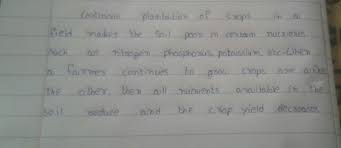 Continuous plantation of crops in a
field makes the soil poor in certain nutrients
such as nitrogen phosphorus, potassium, etc. When
a farmer continues to grow crops one after
the other, then all nutrients available in the
soil reduce and the crop yield decreases